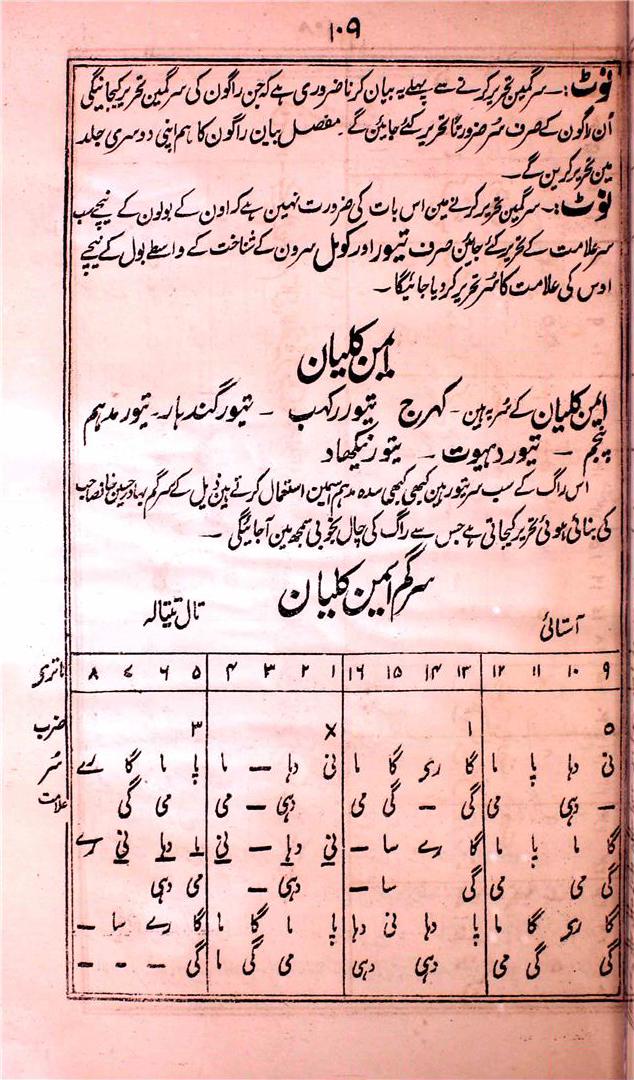 ۱۰۹
نوٹ:۔ سرگمین تحریر کرنے سے پہلے یہ بیان کرنا ضروری ہے کہ جن راگون کی سرگمین تحریر کیجائینگی
اُن راگون کے صرف سُر ضرورتاً تحریر کئے جایئن گے۔ مفصل بیان راگون کا ہم اپنی دوسری جلد
مین تحریر کرین گے۔
نوٹ:۔ سرگمین تحریر کرنے مین اس بات کی ضرورت نہین ہے کہ اون کے بولون کے نیچے سب
سر علامت کے تحریر کئے جایئن صرف تیور اور کومل سرون کے شناخت کے واسطے بول کے نیچے
اوس کی علامت کا سُر تحریر کر دیا جائیگا۔
ایمن کلیان
ایمن کلیان کے سُر یہ ہین۔ کہرج تیور رکہب ۔ تیور گندہار۔ تیور مدہم
پنجم ۔ تیور دہیوت ۔ تیور نیکھاد
اس راگ کے سب سر تیور ہین کبھی کبھی سدہ مدہم اسمین استعمال کرتے ہین ذیل کے سرگم بہادر حسین خانصاحب
کی بنائی ہوئی تحریر کیجاتی ہے جس سے راگ کی چال بخوبی سمجھ مین آجائیگی ۔
سرگم ایمن کلیان
آستائی تال تیتالہ
ماتری ۹ ۱۰ ۱۱ ۱۲ ۱۳ ۱۴ ۱۵ ۱۶ ۱ ۲ ۳ ۴ ۵ ۶ ۷ ۸
ضرب ۵ ۱ × ۳
سُر نی دہا پا ما گا ری گا ما نی دہا – ما پا ما گا رے
علامت – دہی می گی – گی می دہی – می می گی
گا ما پا ما گا رے سا – نی دہا – نی دہا نی رے
گی می می گی سا – دہی – می دہی
گا ری گا ما پا دہا نی دہا پا ما گا ما گا رے سا –
گی گی می دہی دہی می گی ما گی – – –